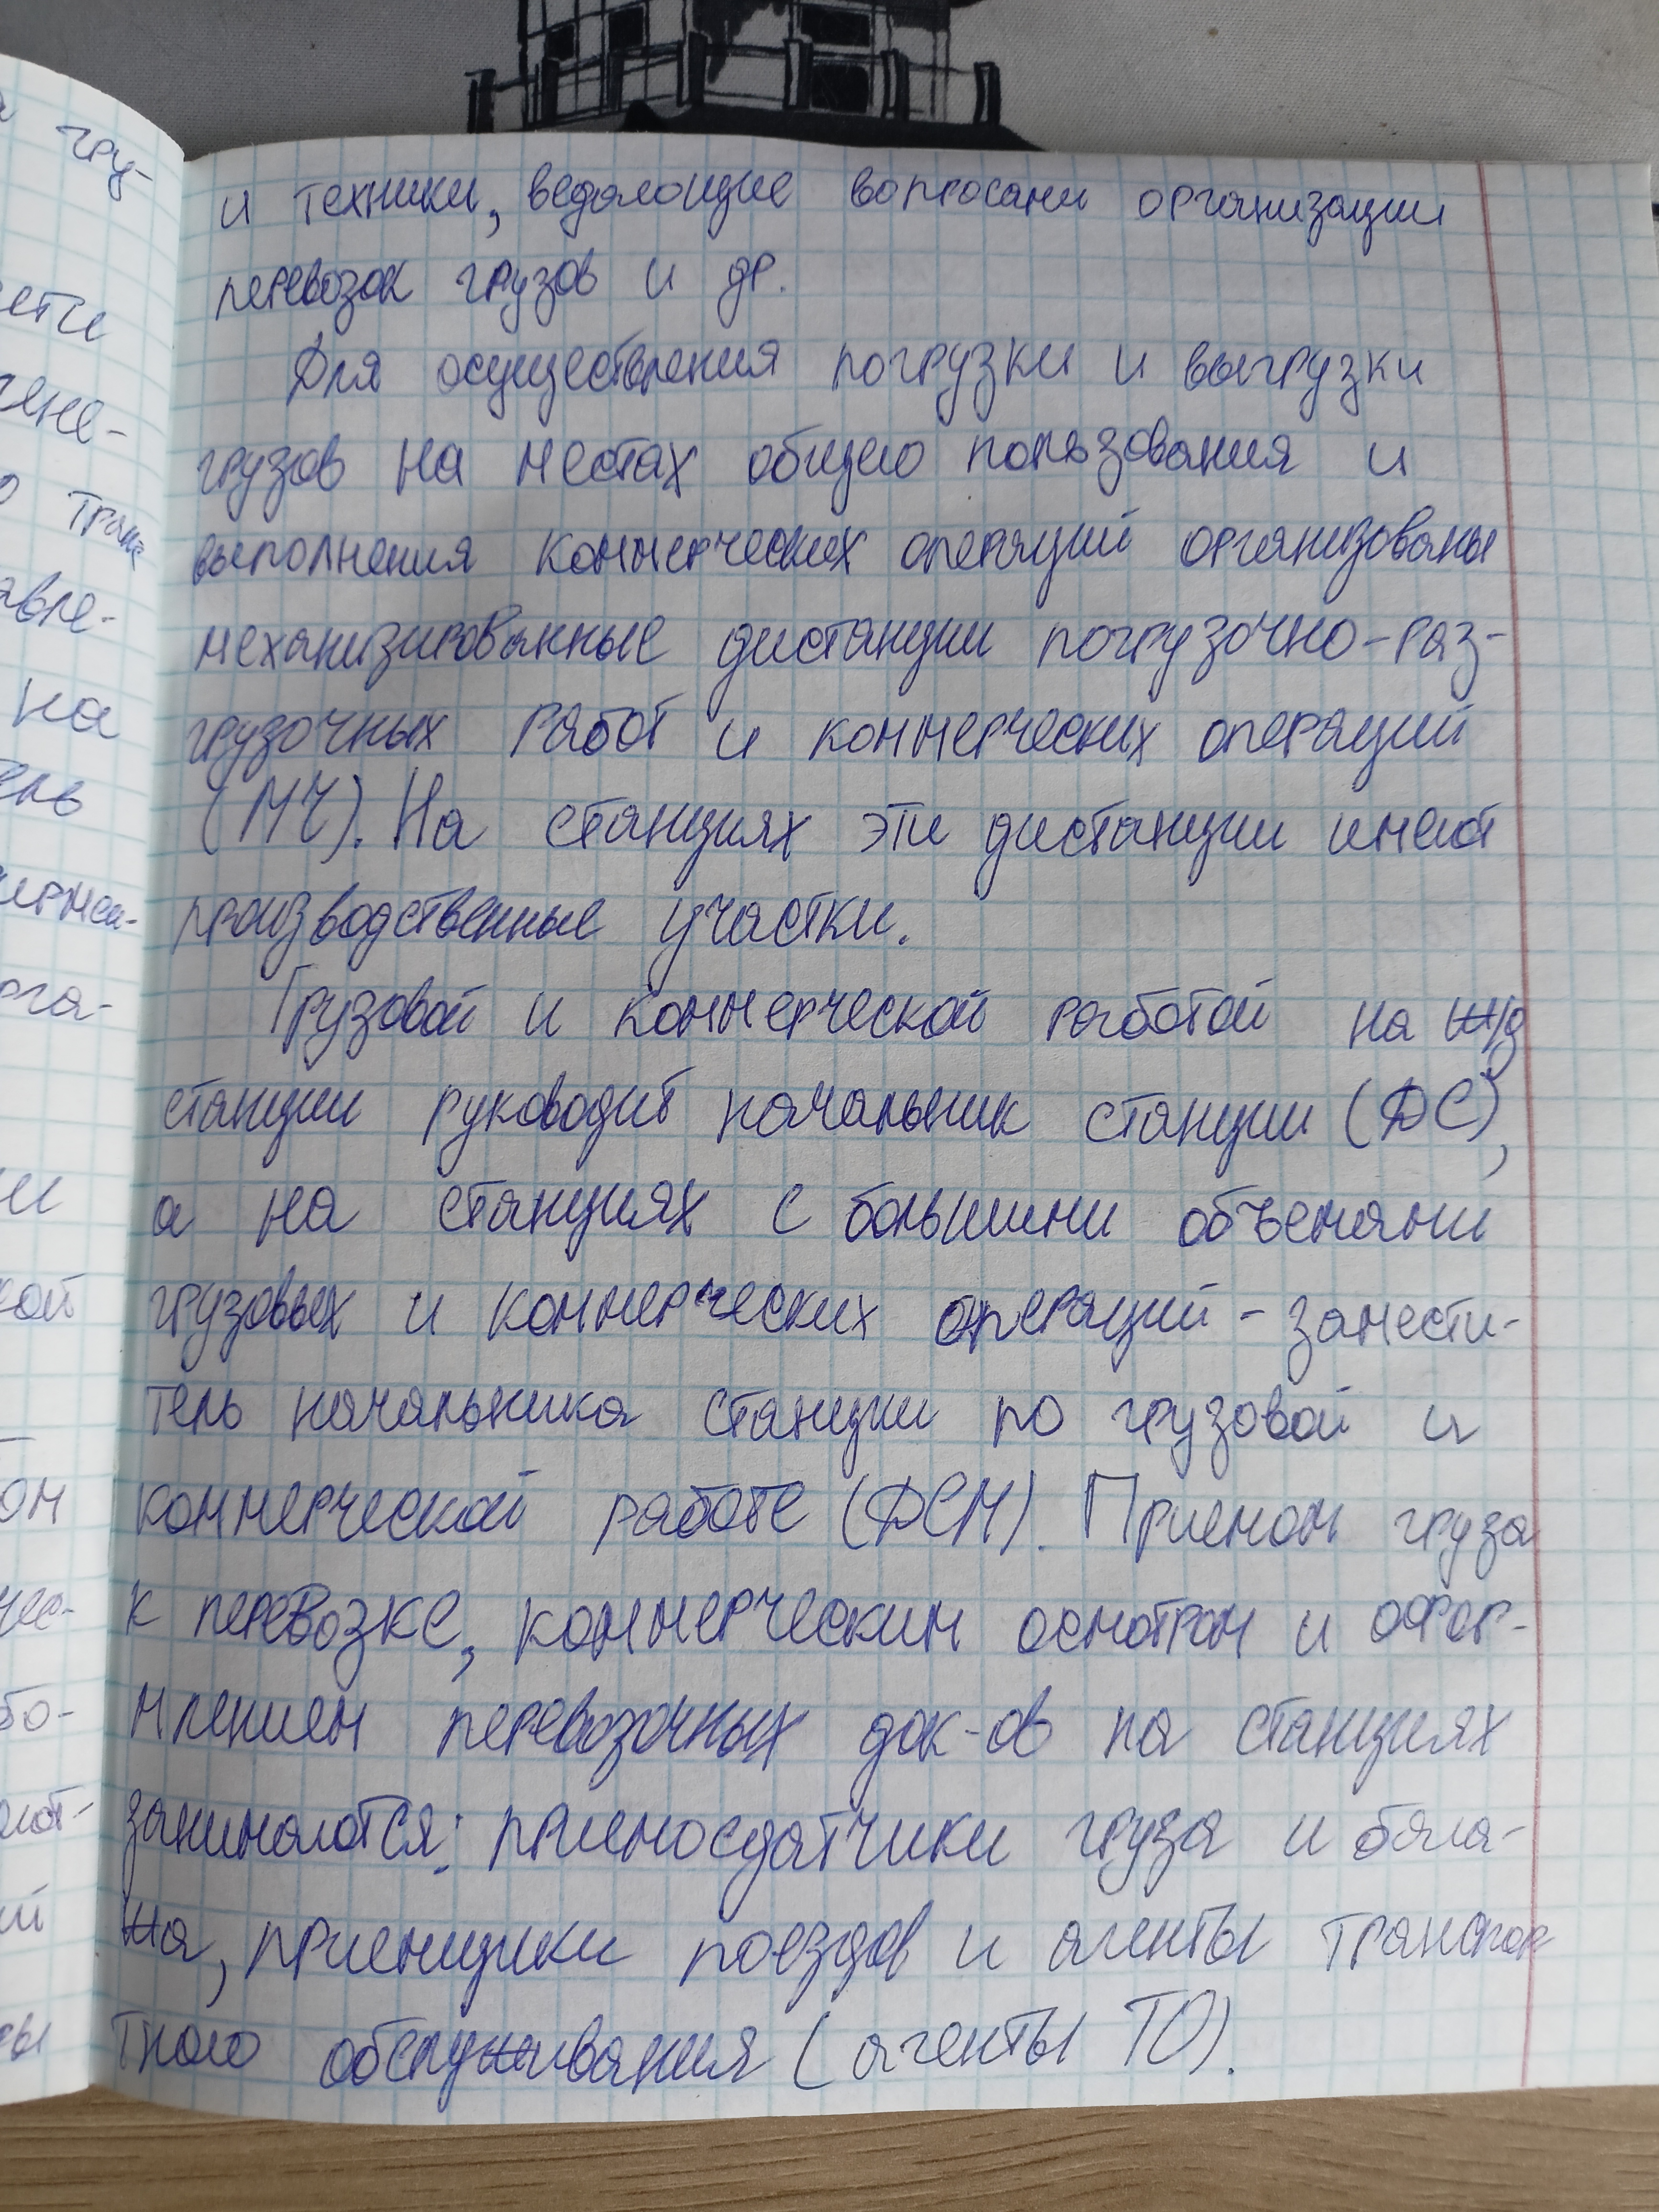 гру-
ети
на
и техники, ведающие вопросами организации
перевозок грузов и др.
Для осуществления погрузки и выгрузки
грузов на местах общего пользования и
выполнения коммерческих операций организованы
механизированные дистанции погрузочно-раз-
грузочных работ и коммерческих операций
(МЧ). На станциях эти дистанции имеют
производственные участки.
Грузовой и коммерческой работой на ж/д
станции руководит начальник станции (ДС),
а на станциях с большими объемами
грузовых и коммерческих операций - замести-
тель начальника станции по грузовой и
коммерческой работе (ДСМ). Приемом груза
к перевозке, коммерческим осмотром и офор-
млением перевозочных док-ов на станциях
занимаются: приемосдатчики груза и бага-
жа, приемщики поездов и агенты транспор
тного обслуживания (агенты ТО).